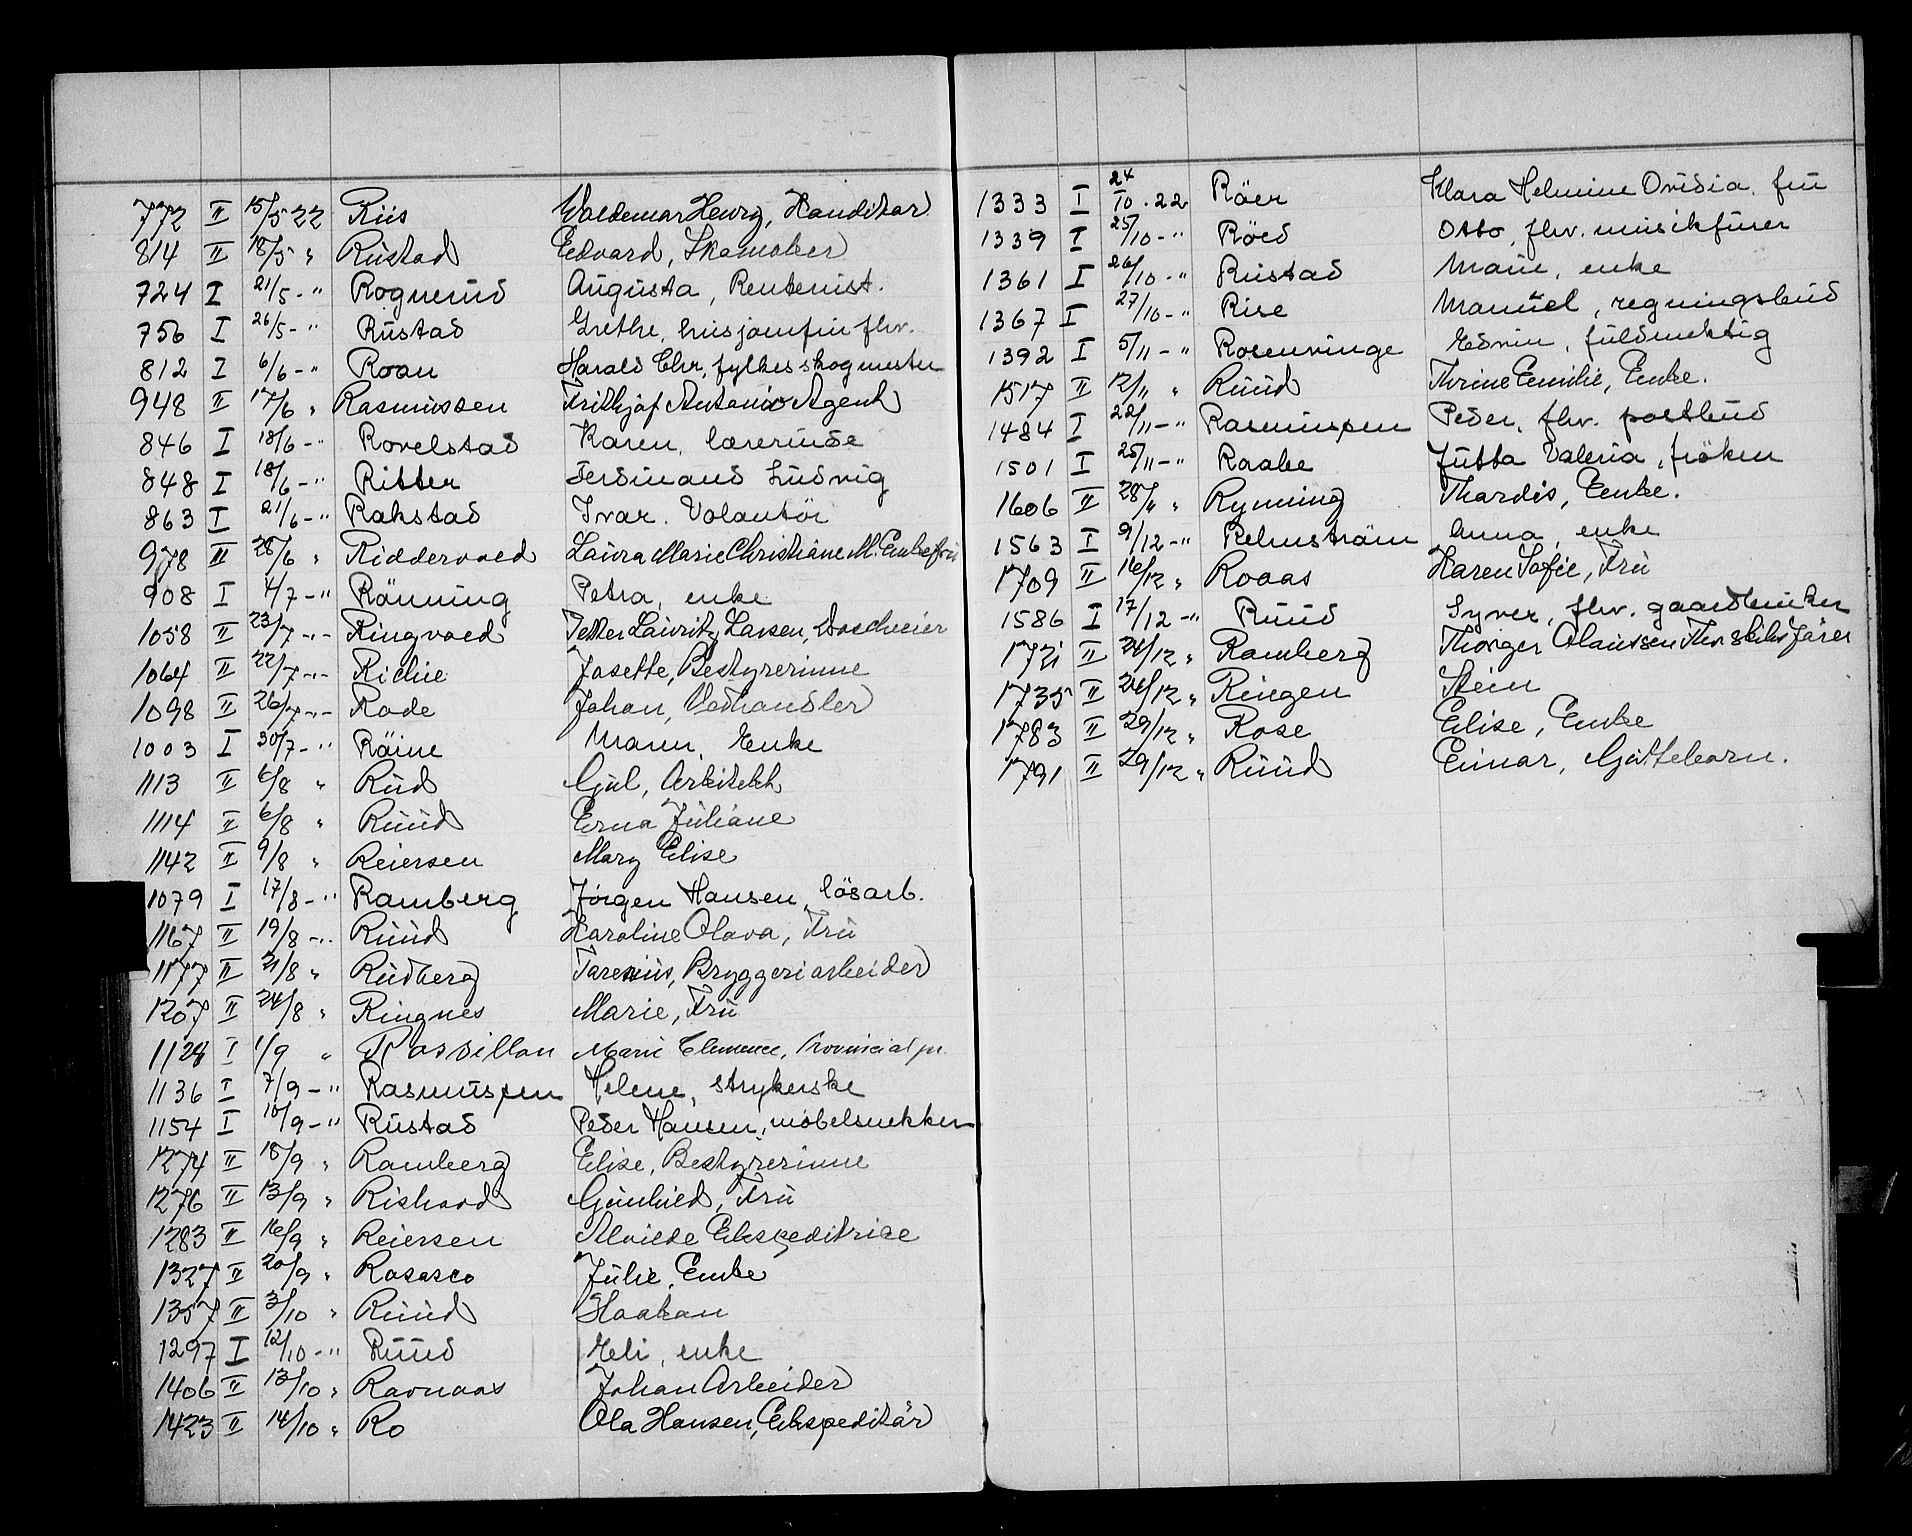 772 II 15/5 22 Riis Valdemar Henry, Konditor
814 II 18/5 " Rustad Edvard, Skomaker
724 I 21/5 - " Rognerud Augusta, Rentenist.
756 I 26/5 - " Rustad Grethe, husjomfru fhv.
812 I 6/6 - " Roan Harald Chr, fylkesskogmester
948 II 17/6 " Rasmussen Frithjof Antonio Agent
846 I 18/6 - " Rovelstad Karen, lærerinde
848 I 18/6 - " Ritter Ferdinand Ludvig
863 I 21/6 - " Rakstad Ivar. Volantör
978 II 28/6 " Riddervold Laura Marie Christiane M. Enkefru
908 I 4/7 - " Rönning Petra, enke
1058 II 23/7 - " Ringvold Petter Lauritz Larsen,
1064 II 22/7 - " Richie Josette, Bestyrerinne
1098 II 26/7 - " Rode Johan, Vedhandler
1003 I 30/7 - " Röine Maren, Enke
1113 II 6/8 " Rud Gul, Arkitekt
1114 II 6/8 " Ruud Erna Juliane
1142 II 9/8 " Reiersen Mary Elise
1079 I 17/8 - " Ramberg Jörgen Hansen, lösarb.
1167 II 19/8 - " Ruud Karoline Olava, Fru
1177 II 21/8 " Rudberg Tarenius, Bryggeriarbeider
1207 II 24/8 " Ringnes Marie, Fru
1128 I 1/9 " Rossillon Marie Clemence, Provincialpr.
1136 I 7/9 - " Rasmussen Helene, strykerske
1154 I 10/9 - " Rustad Peder Hansen, møbelsnekker
1274 II 18/9 " Ramberg Elise, Bestyrerinne
1276 II 13/9 " Rishovd Gunhild, Fru
1283 II 16/9 " Reiersen Alvilde Ekspeditrice
1327 II 20/9 " Rosasco Julie, Enke
1357 II 3/10 " Ruud Haakon
1297 I 12/10 - " Ruud Eli, enke
1406 II 13/10 " Ravnaas Johan Arbeider
1423 II 14/10 " Ro Ola Hansen, Ekspeditör
1333 I 24/10 . 22 Röer Klara Helmine Ovidia. fru
1339 I 25/10 - " Röed Otto, fhv. musikfurer
1361 I 26/10 - " Rustad Marie, enke
1367 I 27/10 - " Rise Manuel, regningsbud
1392 I 5/11 - " Rosenvinge Edvin, fuldmektig
1517 II 12/11 " Ruud Thrine Emilie, Enke.
1484 I 22/11 - " Rasmussen Peder, fhv. postbud
1501 I 25/11 - " Raabe Jutta Valeria, fröken
1606 II 28/11 " Rynning Thardis, Enke.
1563 I 9/12 - " Rehnström Anna, enke
1709 II 16/12 " Roaas Karen Sofie, Fru
1586 I 17/12 - " Ruud Syver, fhv. gaardbruker
1721 II 24/12 " Ramberg Thorger Olaussen Fhv.
1735 II 24/12 " Ringen Stein
1783 II 29/12 " Rose Elise, Enke
1791 II 29/12 " Ruud Einar, Guttebarn.